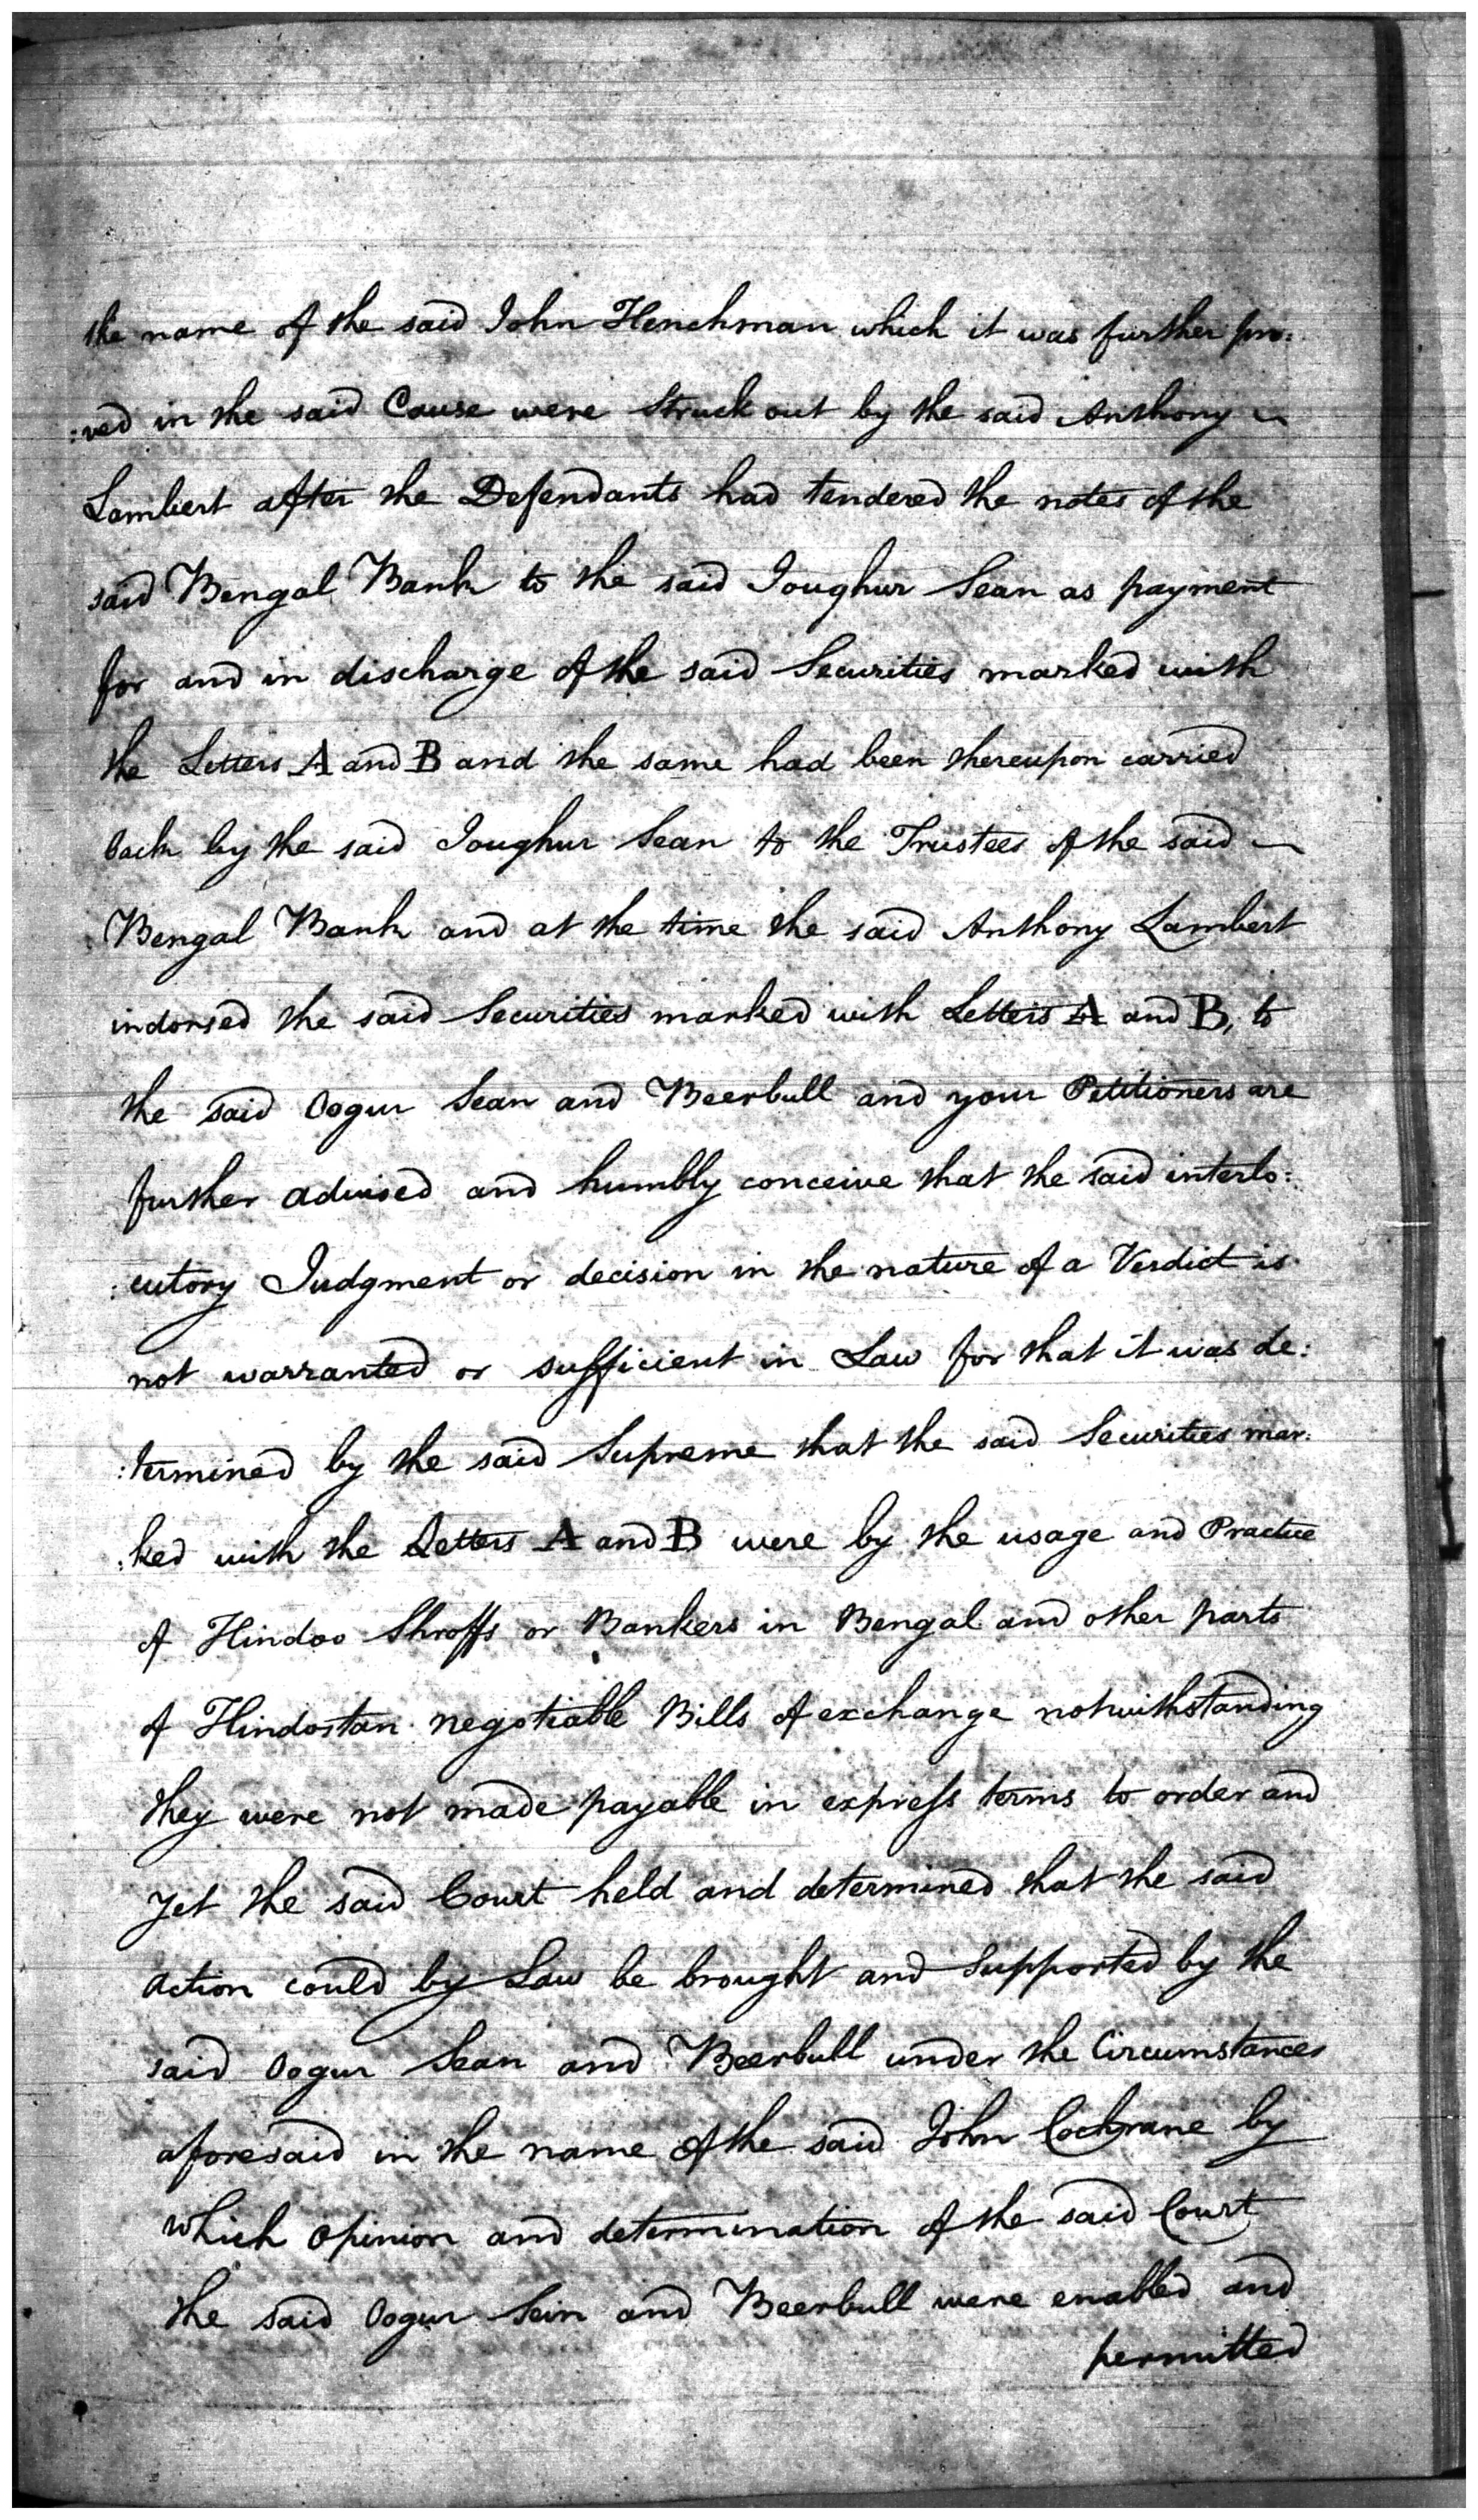 the name of the said John Henchman which it was further pro:
:ved in the said Cause were Struck out by the said Anthony
Lambert after the Defendants had tendered the notes of the
said Bengal Bank to the said Joughur Sean as payment
for and in discharge of the said Securities marked with
the Letters A and B and the same had been thereupon carried
back by the said Joughur Sean to the Trustees of the said
Bengal Bank and at the time the said Anthony Lambert
indorsed the said Securities marked with Letters A and B, to
the said Oogur Sean and Beerbull and your Petitioners are
further advised and humbly conceive that the said interlo:
:cutory Judgment or decision in the nature of a Verdict is
not warranted or sufficient in Law for that it was de:
:termined by the said Supreme that the said Securities mar:
:ked with the Letters A and B were by the usage and Practice
of Hindoo Shroffs or Bankers in Bengal and other parts
of Hindostan negotiable Bills of exchange notwithstanding
they were not made payable in express terms to order and
yet the said Court held and determined that the said
action could by Law be brought and supported by the
said Oogur Sean and Beerbull under the Circumstances
aforesaid in the name of the said John Cochrane by
which opinion and determination of the said Court
the said Oogur Sein and Beerbull were enabled and
permitted